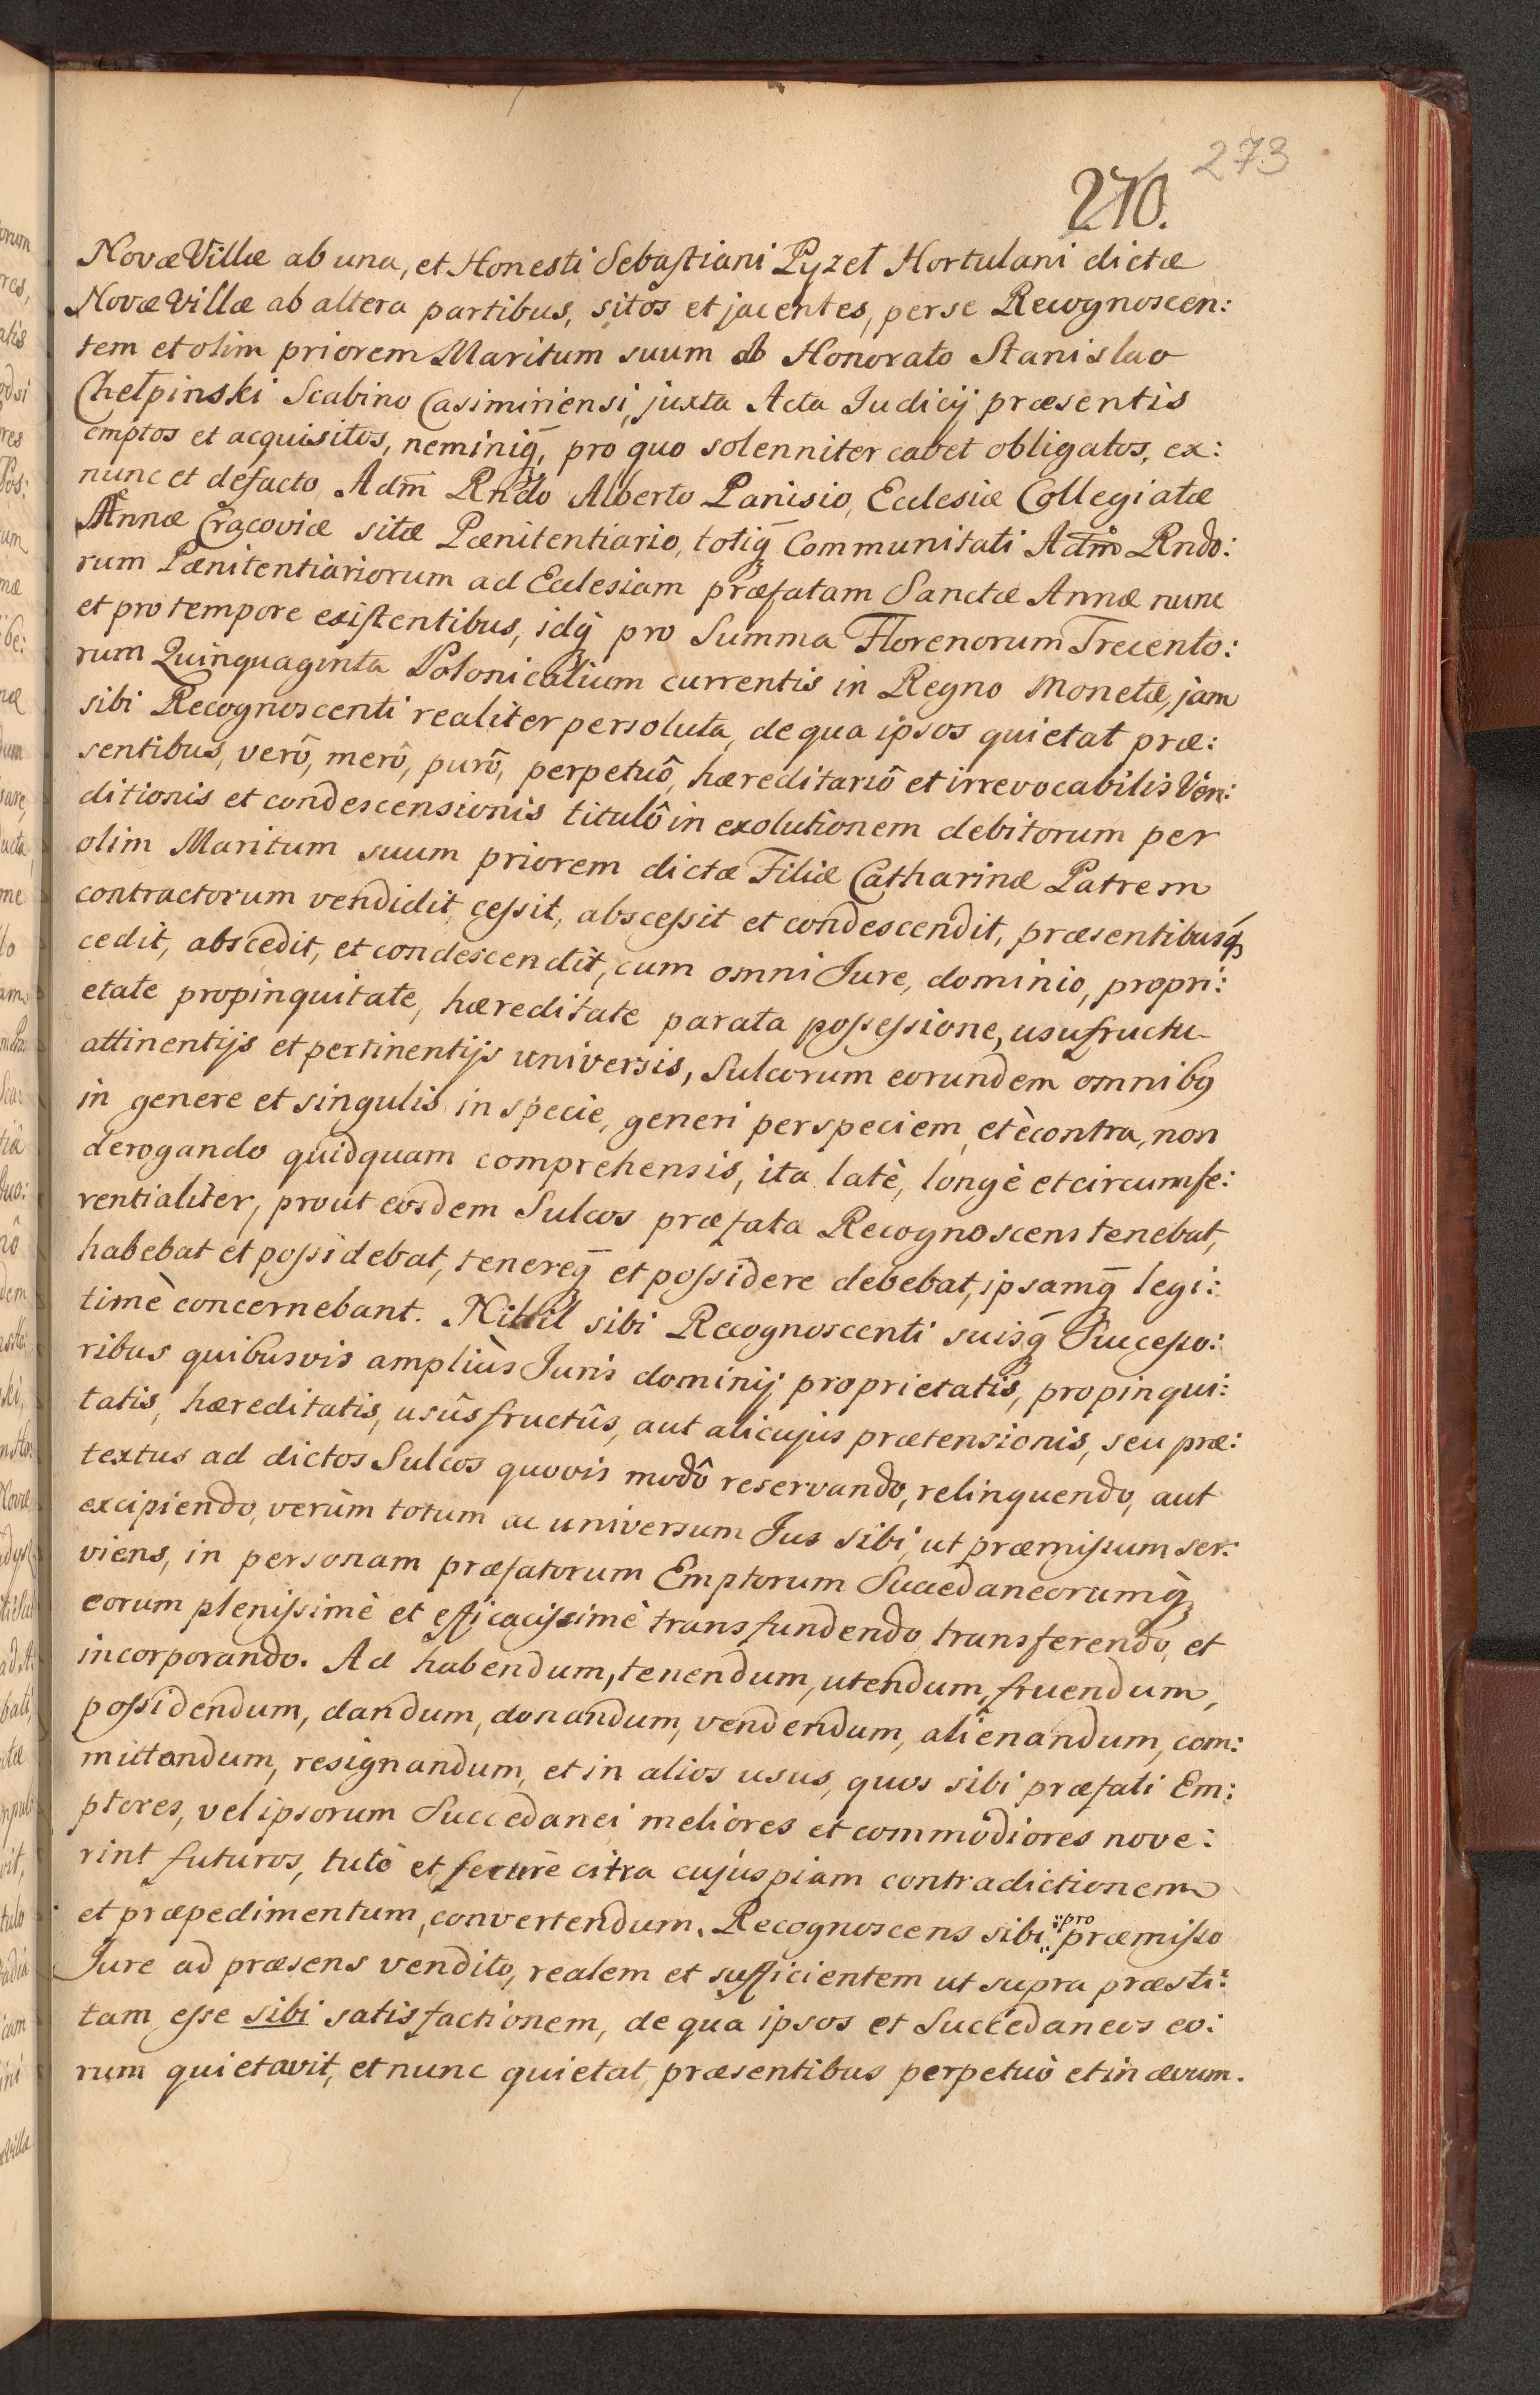 273
270.
Novæ Villæ ab una, et Honesti Sebastiani Pyzel Hortulani dictæ
Novæ Villæ ab altera partibus, sitos et jacentes, per se Recognoscen:
tem et olim priorem Maritum suum ab Honorato Stanislao
Chełpinski Scabino Casimiriensi, juxta Acta Judicij præsentis
emptos et acquisitos, neminiq̃, pro quo solenniter cavet obligatos, ex:
nunc et defacto Adm̃ Rndo Alberto Panisio, Ecclesiæ Collegiatæ
Annæ Cracoviæ sitæ Pænitentiario, totiq̃ Communitati Adm̃ Rndo:
rum Pænitentiariorum ad Ecclesiam præfatam Sanctæ Annæ nunc
et pro tempore existentibus, idq̃ pro Summa Florenorum Trecento:
rum Quinquaginta Polonicalium currentis in Regno Monetæ, jam
sibi Recognoscenti realiter persoluta, de qua ipsos quietat præ:
sentibus, verô, merô, purô, perpetuô, hæreditariô et irrevocabilis Ven:
ditionis et condescensionis titulô in exolutionem debitorum per
olim Maritum suum priorem dictæ Filiæ Catharinæ Patrem
contractorum vendidit, cessit, abscessit et condescendit, præsentibusq̃
cedit, abscedit, et condescendit, cum omni Jure, dominio, propri:
etate propinquitate, hæreditate parata possessione, usufructu
attinentijs et pertinentijs universis, Sulcorum eorundem omnibq
in genere et singulis in specie, generi per speciem, et è contra, non
derogando quidquam comprehensis, ita latè, longè et circumfe:
rentialiter, prout eosdem Sulcos præfata Recognoscens tenebat,
habebat et possidebat, tenereq̃ et possidere debebat, ipsamq̃ legi:
timè concernebant. Nihil sibi Recognoscenti suisq̃ Successo:
ribus quibusvis ampliùs Juris dominij proprietatis, propinqui:
tatis, hæreditatis, usûsfructûs, aut alicujus prætensionis, seu præ:
textus ad dictos Sulcos quovis modô reservando, relinquendo, aut
excipiendo, verùm totum ac universum Jus sibi, ut præmissum ser:
viens, in personam præfatorum Emptorum Succedaneorumq̃
eorum plenissimè et efficacissimè transfundendo, transferendo, et
incorporando. Ad habendum, tenendum, utendum, fruendum,
possidendum, dandum, donandum, vendendum, alienandum, com:
mutandum, resignandum, et in alios usus, quos sibi præfati Em:
ptores, vel ipsorum Succedanei meliores et commodiores nove:
rint futuros, tutò et securè citra cujuspiam contradictionem
et præpedimentum, convertendum. Recognoscens sibi pro præmisso
Jure ad præsens vendito, realem et sufficientem ut supra præsti:
tam esse sibi satisfactionem, de qua ipsos et Succedaneos eo:
rum quietavit, et nunc quietat, præsentibus perpetuò et in ævum.